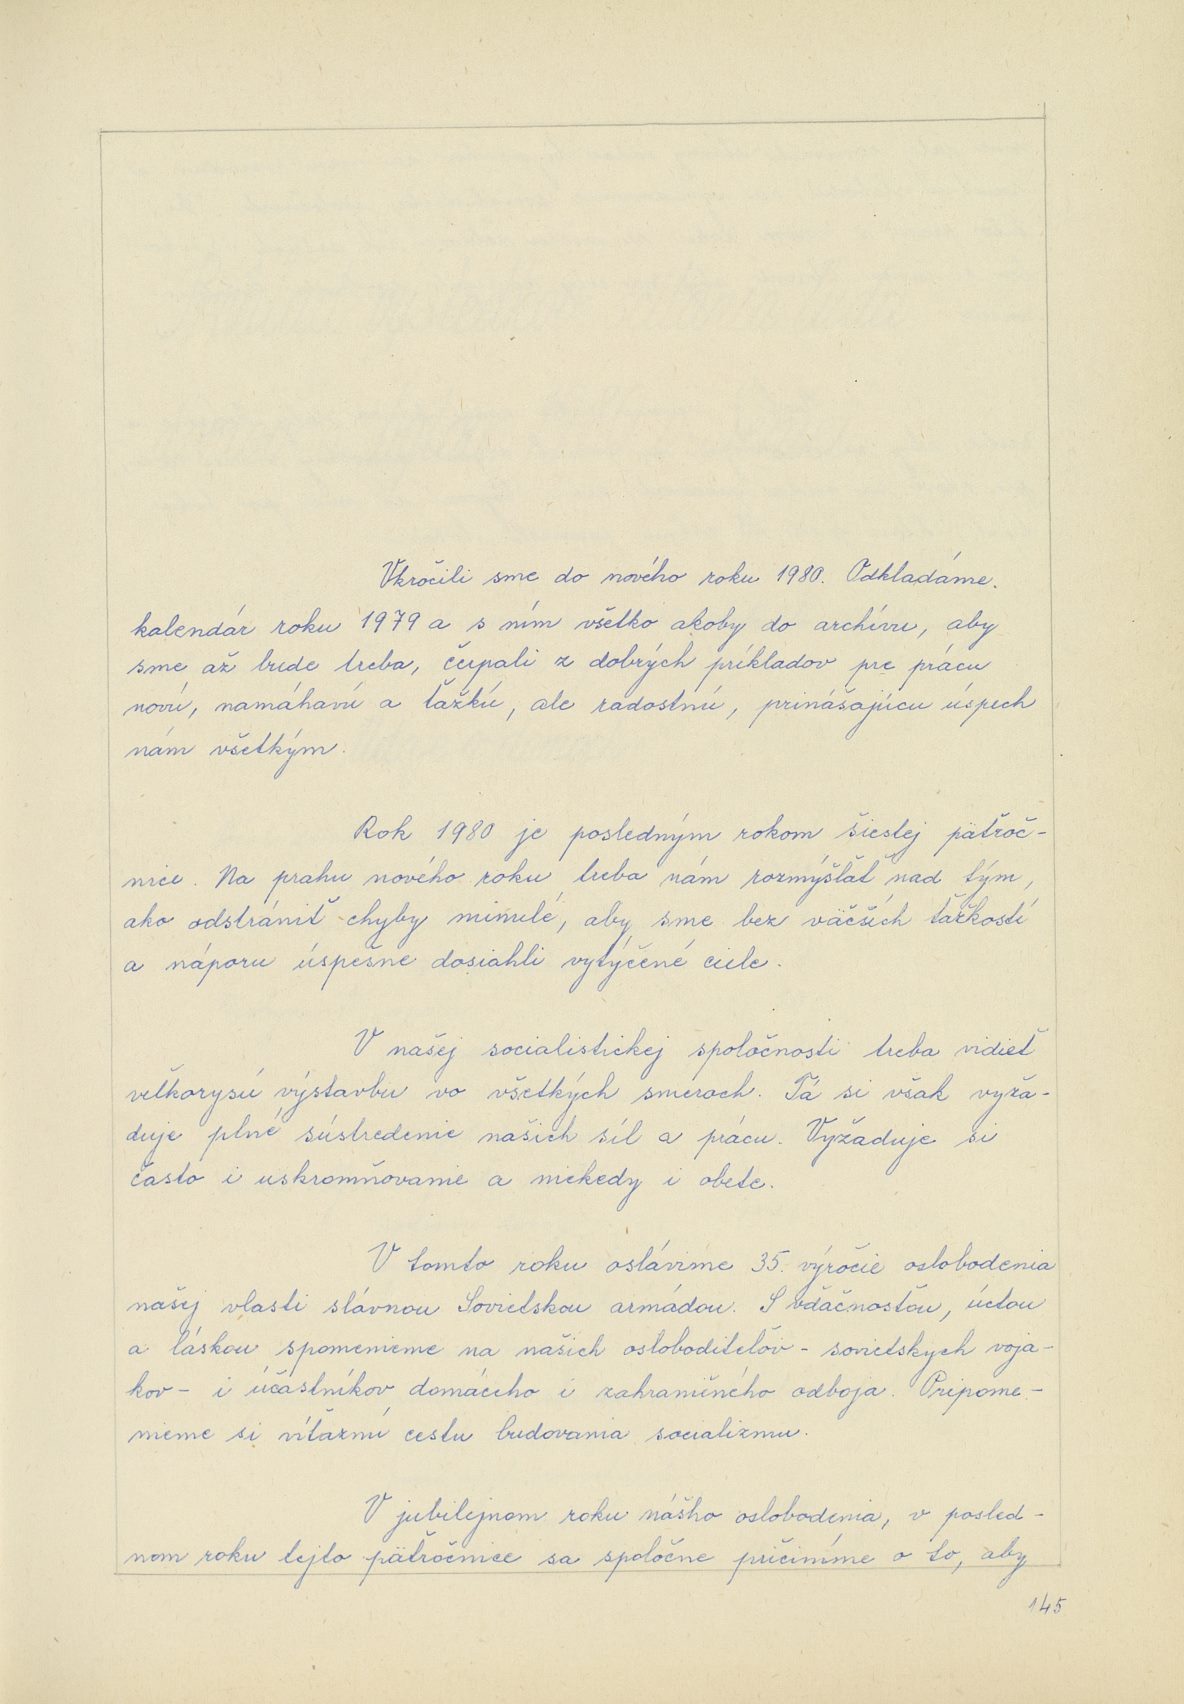 Vkročili sme do nového roku 1980. Odkladáme
kalendár roku 1979 a s ním všetko akoby do archívu, aby
sme až bude treba, čerpali z dobrých príkladov pre prácu
novú, namáhavú a ťažkú, ale radostnú, prinášajúcu úspech
nám všetkým.
Rok 1980 je posledným rokom šiestej päťroč-
nice. Na prahu nového roku treba nám rozmýšľať nad tým,
ako odstrániť chyby minulé, aby sme bez väčších ťažkostí
a náporu úspešne dosiahli vytýčené ciele.
V našej socialistickej spoločnosti treba vidieť
veľkorysú výstavbu vo všetkých smeroch. Tá si však vyža-
duje plné sústredenie našich síl a prácu. Vyžaduje si
často i uskromňovanie a niekedy i obete.
V tomto roku oslávime 35. výročie oslobodenia
našej vlasti slávnou Sovietskou armádou. S vďačnosťou, úctou
a láskou spomenieme na našich osloboditeľov - sovietskych voja-
kov - i účastníkov domáceho i zahraničného odboja. Pripome-
nieme si víťaznú cestu budovania socializmu.
V jubilejnom roku nášho oslobodenia, v posled-
nom roku tejto päťročnice sa spoločne pričiníme o to, aby
145